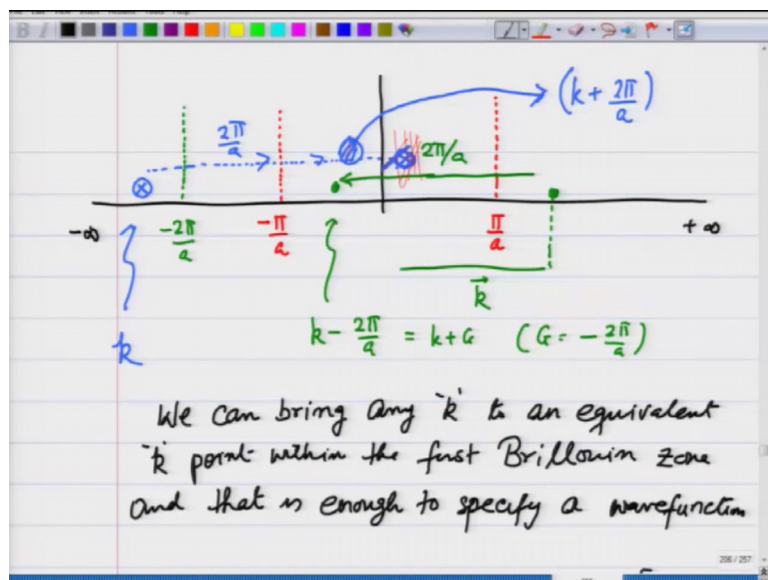 (k + 2π/a)
2π/a
2π/a
-∞
-2π/a
-π/a
π/a
+∞
k
k
k - 2π/a = k+G (G = - 2π/a)
We can bring any 'k' to an equivalent
'k' point within the first Brillouin zone
and that is enough to specify a wavefunction
206 / 257